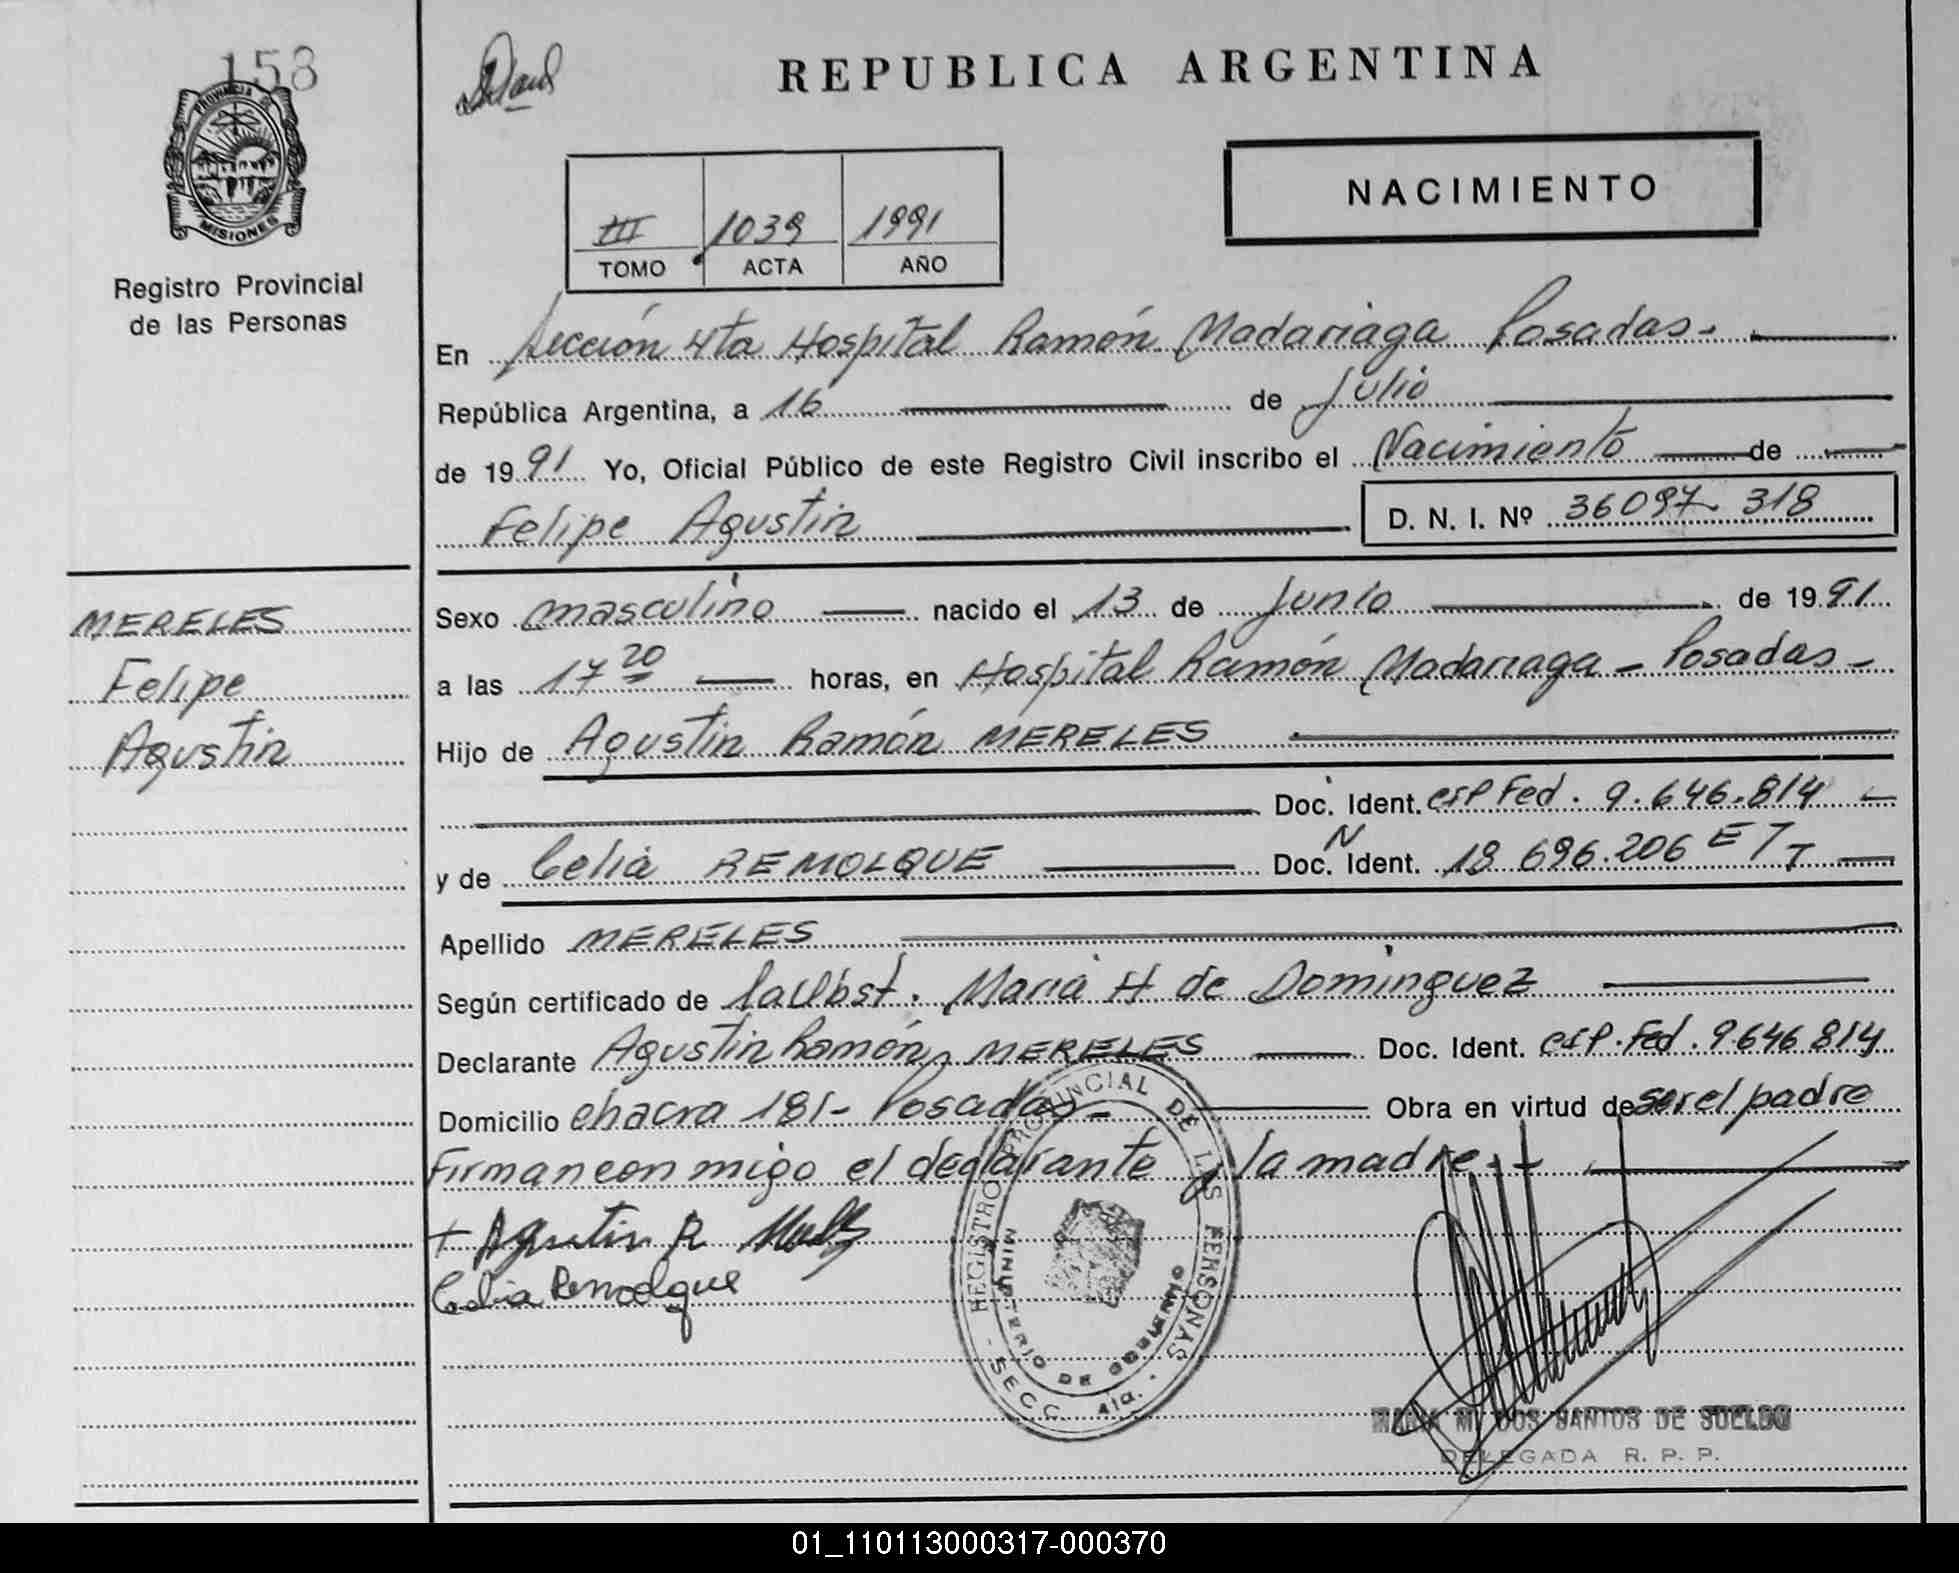 158
REPUBLICA ARGENTINA
PROVINCIA DE
MISIONES
Registro Provincial
de las Personas
NACIMIENTO
III 1039 1991
TOMO ACTA AÑO
En Sección 4ta Hospital Ramón Madariaga Posadas.
República Argentina, a 16 de Julio
de 1991 Yo, Oficial Público de este Registro Civil inscribo el Nacimiento de
Felipe Agustin D. N. I. Nº 36097.318
MERELES
Felipe
Agustin
Sexo masculino nacido el 13 de Junio de 1991
a las 17 20 horas, en Hospital Ramón Madariaga - Posadas -
Hijo de Agustin Ramón MERELES
Doc. Ident. Fed. 9.646.814
y de Celia REMOLQUE Doc. Ident. N 18 696.206
Apellido MERELES
Según certificado de Maria H de Dominguez
Declarante Agustin Ramón MERELES Doc. Ident. Fed. 9.646.814
Domicilio chacra 181- Posadas - Obra en virtud de ser el padre
Firman con migo el declarante y la madre.
+ Agustin R
Celia Remolque
REGISTRO PROVINCIAL DE LAS PERSONAS
MINISTERIO DE GOBIERNO
- SECC. 4ta. -
MARIA M. DOS SANTOS DE SUELDO
DELEGADA R. P. P.
01_110113000317-000370